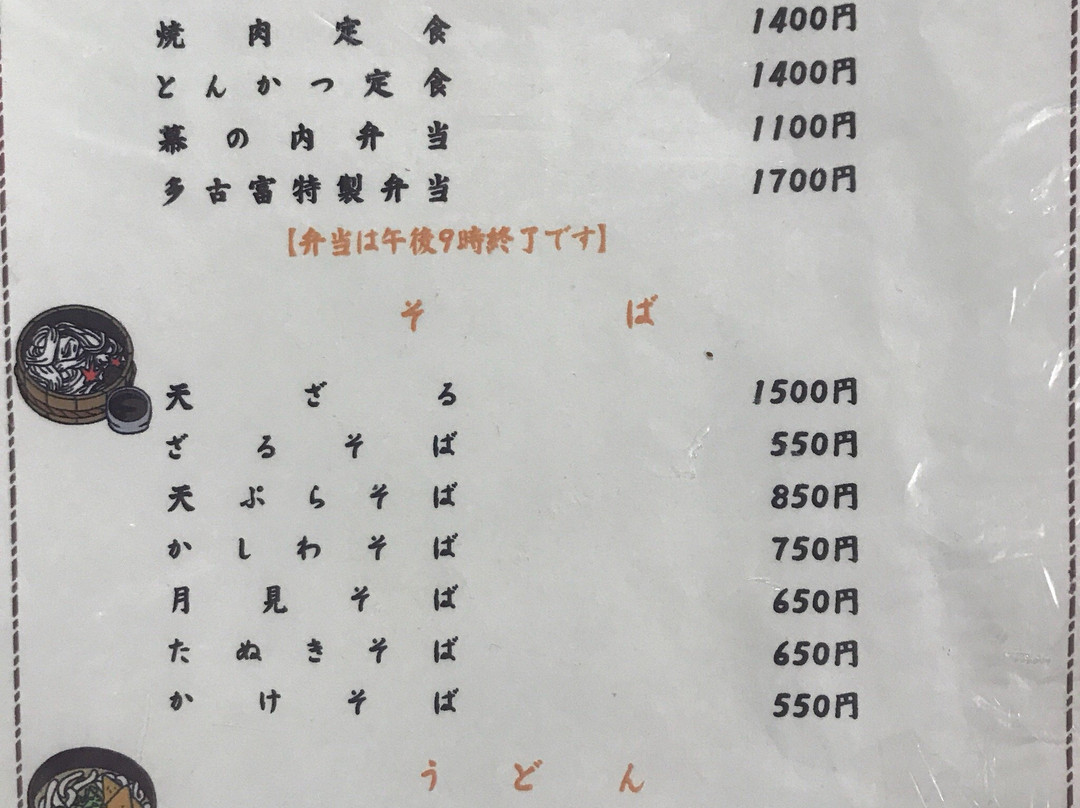 焼肉定食 1400円
とんかつ定食 1400円
幕の内弁当 1100円
多古富特製弁当 1700円
【弁当は午後9時終了です】
そば
天ざる 1500円
ざるそば 550円
天ぷらそば 850円
かしわそば 750円
月見そば 650円
たぬきそば 650円
かけそば 550円
うどん